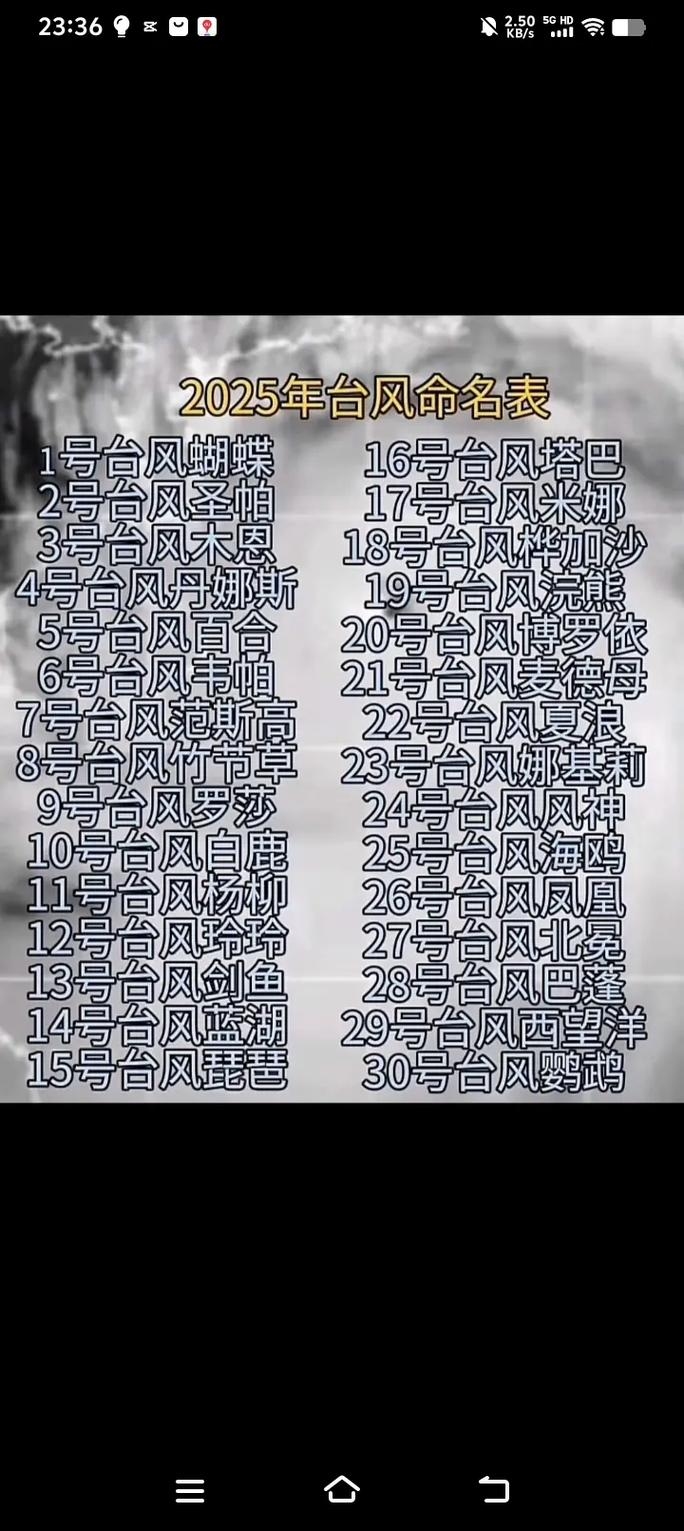 23:36
2.50 KB/s 5G HD
2025年台风命名表
1号台风蝴蝶
2号台风圣帕
3号台风木恩
4号台风丹娜斯
5号台风百合
6号台风韦帕
7号台风范斯高
8号台风竹节草
9号台风罗莎
10号台风白鹿
11号台风杨柳
12号台风玲玲
13号台风剑鱼
14号台风蓝湖
15号台风琵琶
16号台风塔巴
17号台风米娜
18号台风桦加沙
19号台风浣熊
20号台风博罗依
21号台风麦德母
22号台风夏浪
23号台风娜基莉
24号台风风神
25号台风海鸥
26号台风凤凰
27号台风北冕
28号台风巴蓬
29号台风西望洋
30号台风鹦鹉